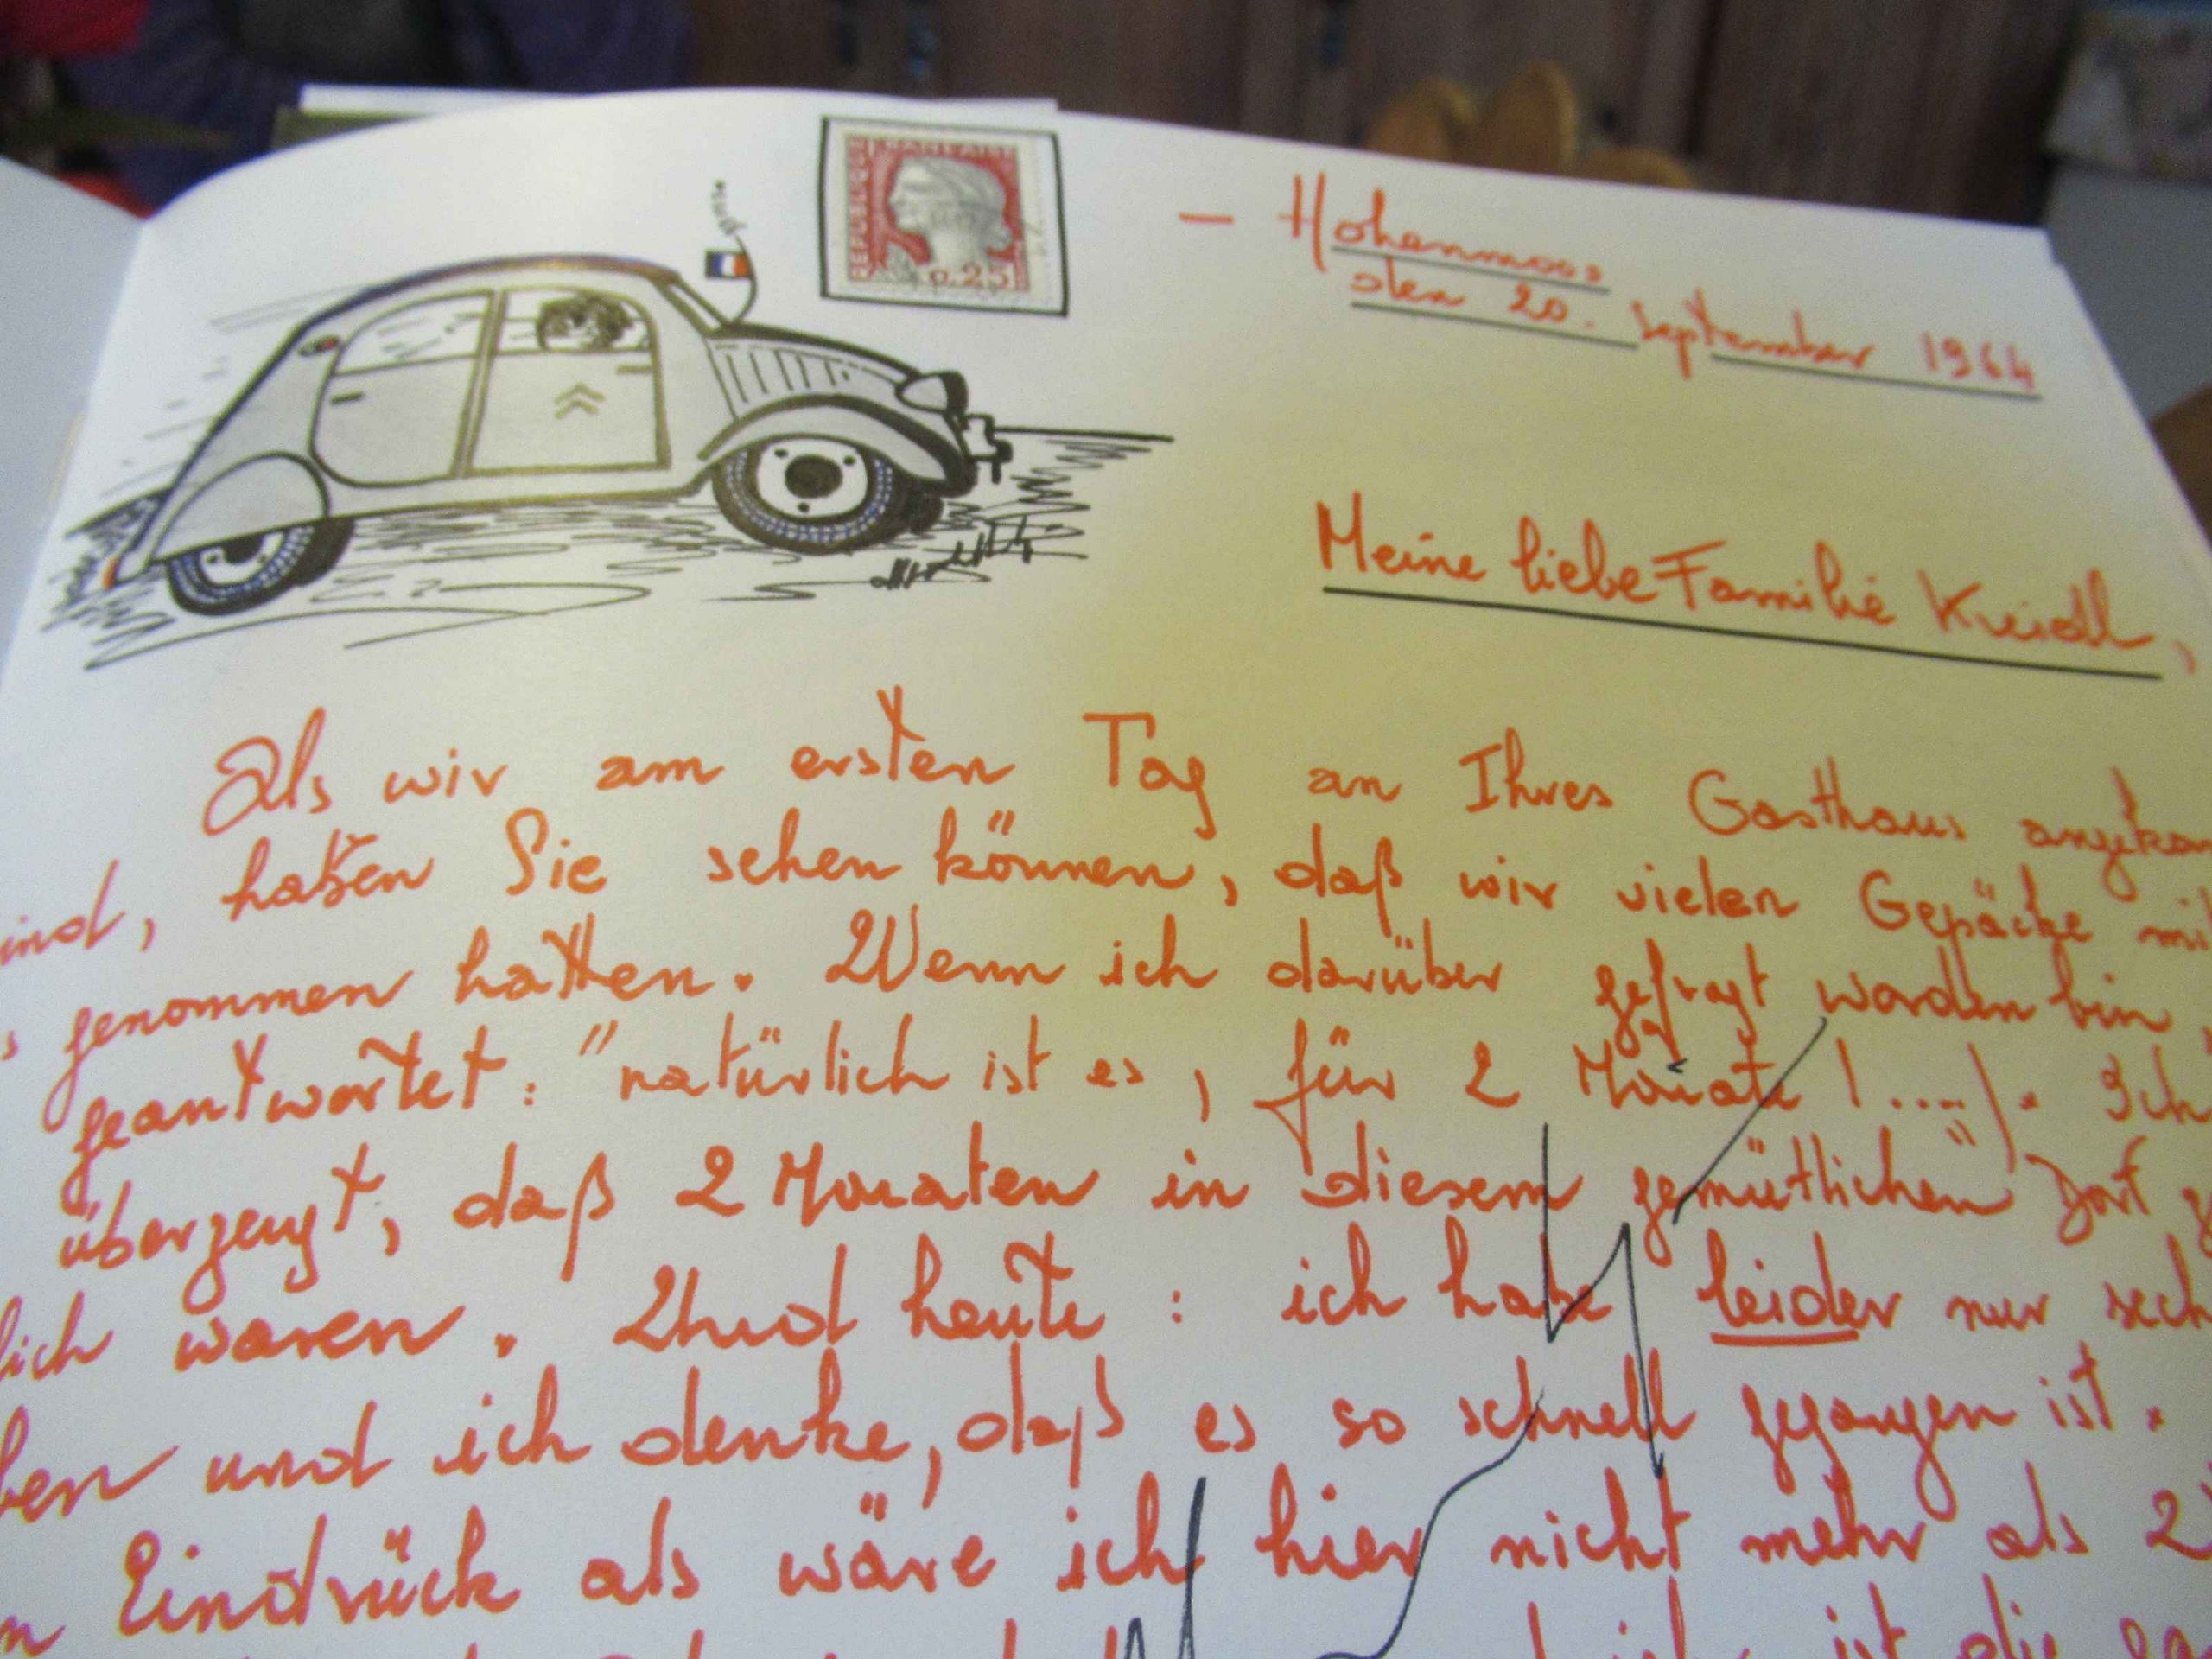 REPUBLIQUE FRANCAISE
0.25
- Hohenmoos
den 20. September 1964
Meine liebe Familie Kreidl,
Als wir am ersten Tag an Ihres Gasthaus angekom
ind, haben Sie sehen können, daß wir vielen Gepäcke mit
s genommen hatten. Wenn ich darüber gefragt worden bin,
geantwortet: "natürlich ist es, für 2 Monate!....". Ich
überzeugt, daß 2 Monaten in diesem gemütlichen Dorf
lich waren. Und heute: ich habe leider nur sech
ben und ich denke, daß es so schnell gegangen ist.
n Eindrück als wäre ich hier nicht mehr als 2
ist die